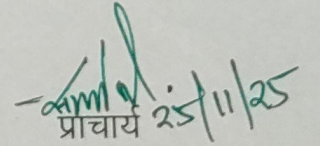 प्राचार्य 25/11/25